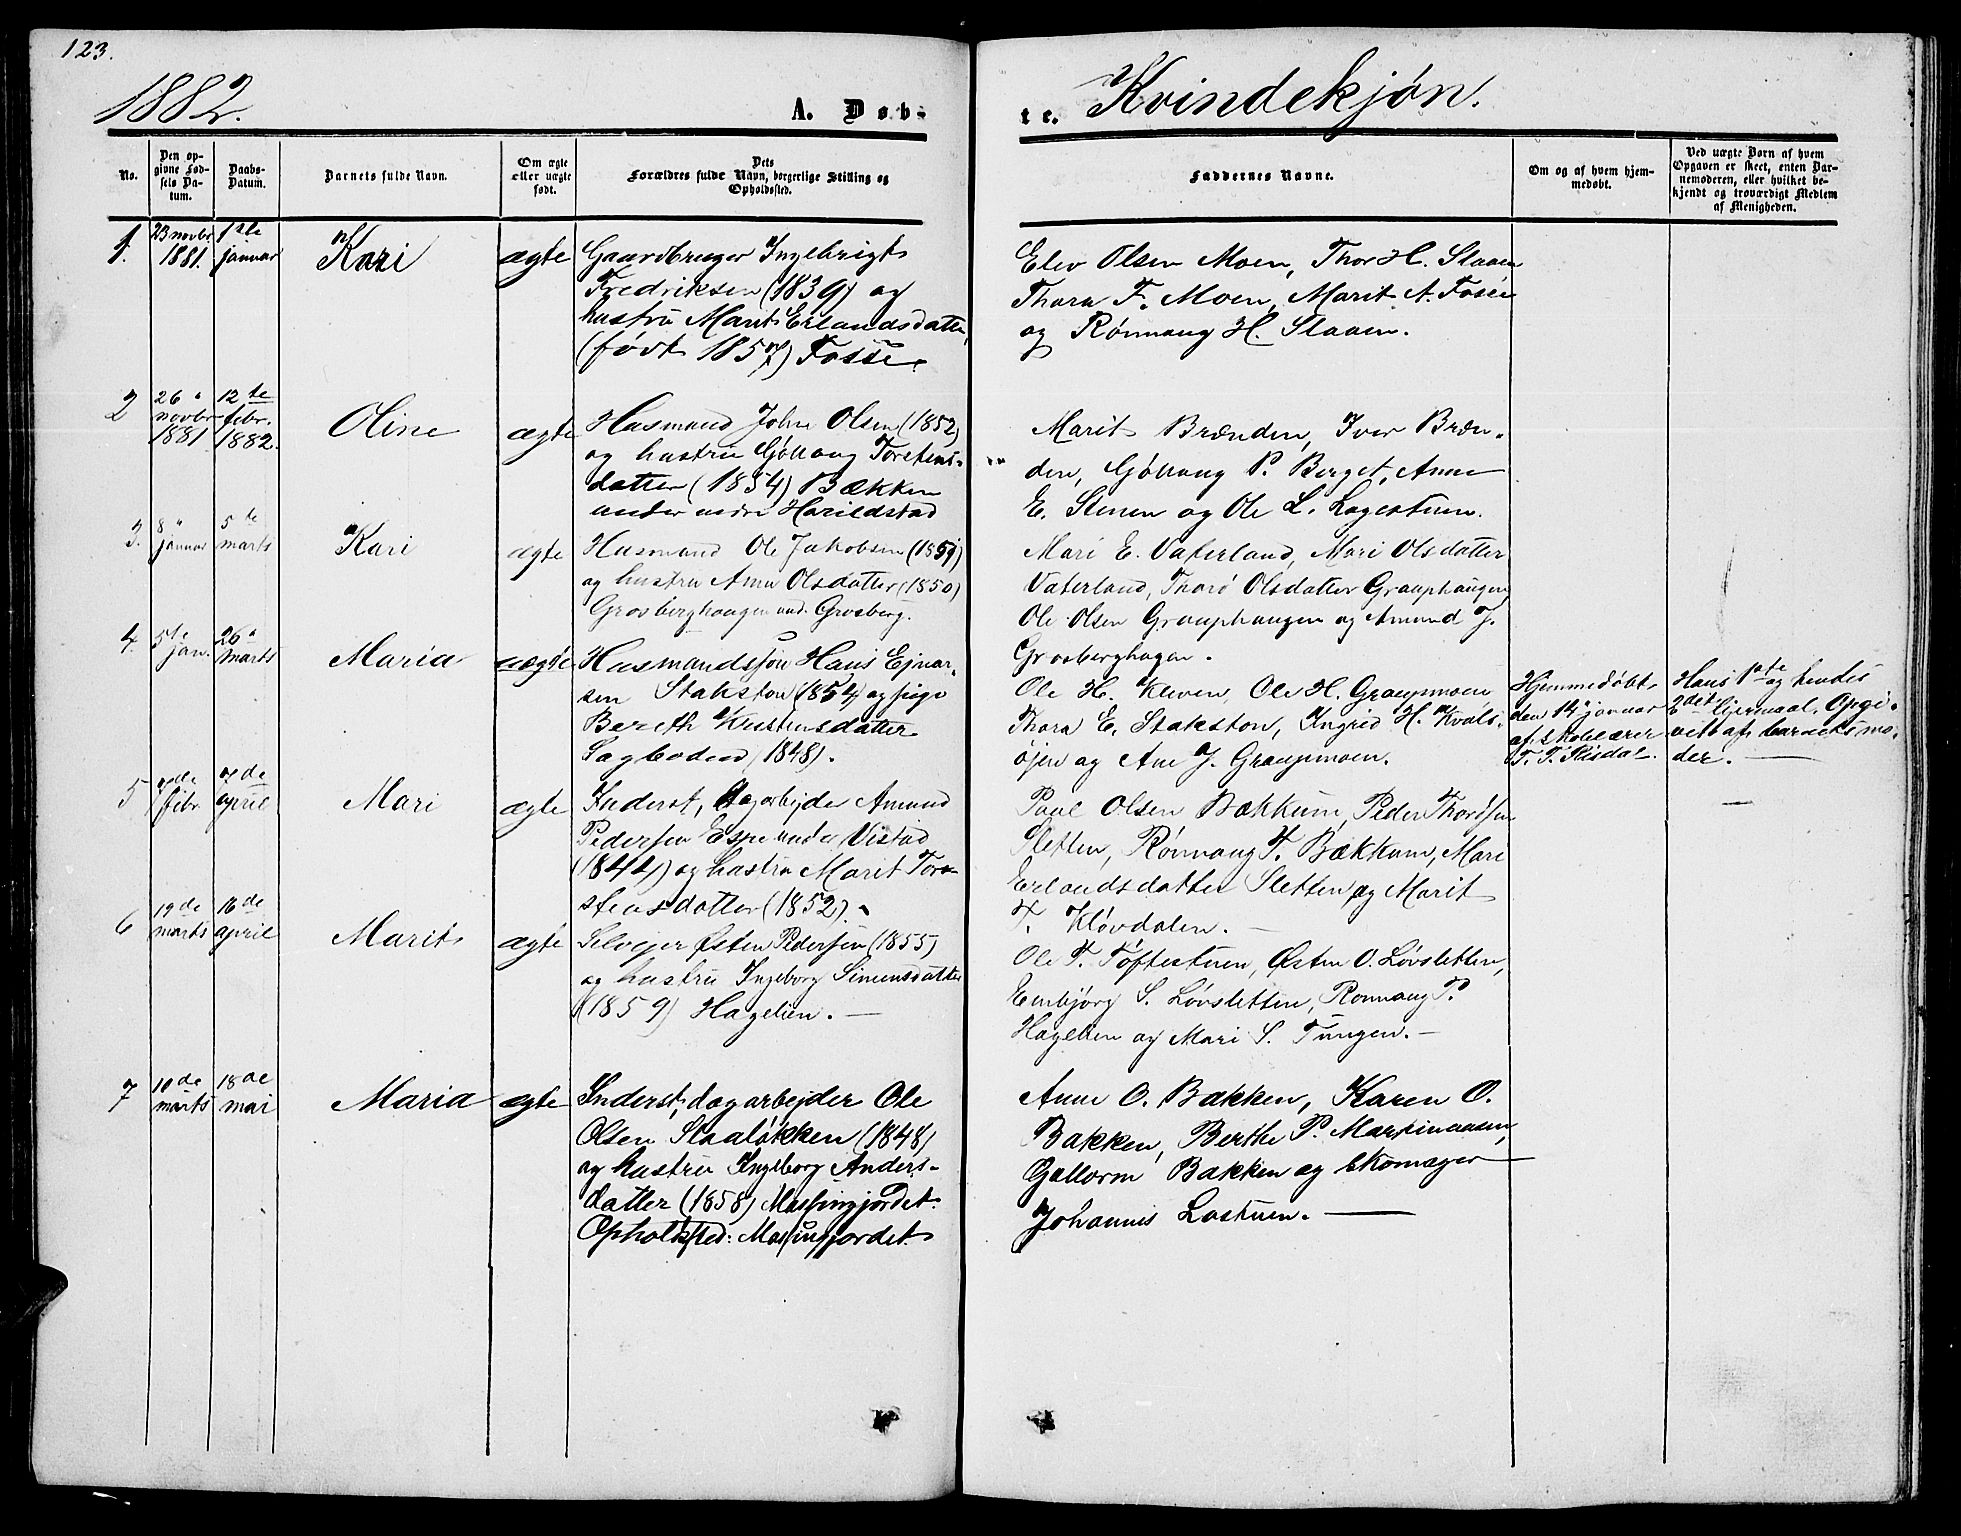 123.
1882.
A. Døb-
te. Kvindekjøn.
No.
Den op-
givne Fød-
sels Da-
tum.
Daabs-
Datum.
Barnets fulde Navn.
Om ægte
eller uægte
født.
Dets
Forældres fulde Navn, borgerlige Stilling og
Opholdssted.
Faddernes Navne.
Om og af hvem hjem-
medøbt.
Ved uægte Børn af hvem
Opgaven er skeet, enten Bar-
nemoderen, eller hvilket be-
kjendt og troværdigt Medlem
af Menigheden.
1.
23 novbr
1881.
1ste
januar
Kari
ægte
Gaardbruger Ingebrigt
Fredriksen (1839) og
hustru Marit Erlandsdatter
(født 1857) Fosse.
Elev Olsen Moen, Thor H. Slaaen
Thora F. Moen, Marit A. Fosse
og Rønnaug H. Slaaen.
2
26.
novbr
1881
12te
febr.
1882.
Oline
ægte
Husmand John Olsen (1852)
og hustru Gøllaug Torstens-
datter (1854) Bækken
under nedre Harildstad
Marit Brænden, Iver Bræn-
den, Gøllaug P. Berget, Anne
E. Stenen og Ole L. Lagestuen.
3.
8
januar
5te
marts
Kari
ægte
Husmand Ole Jakobsen (1851)
og hustru Anne Olsdatter (1850)
Grosberghaugen und. Grosberg.
Mari E. Vaterland, Mari Olsdatter
Vaterland, Thorø Olsdatter Grauphaugen
Ole Olsen Grauphaugen og Amund J.
Grosberghagen.
4.
5te
jan.
26.
marts
Maria
uægte
Husmandssøn Hans Ejnar-
sen Stakston (1854) og pige
Bereth Kristensdatter
Sagboden (1848).
Ole H. Kleven, Ole H. Graupmoen
Thora E. Stakeston, Ingrid H. Kvols-
øjen og Ane J. Graupmoen.
Hjemmedøbt
den 14 januar
af Skolelærer
T. T. Risdal.
Hans 1ste og hendes
2det lejermaal. Opgi-
vett af barnets mo-
der.
5
7de
febr
7de
april
Mari
ægte
Inderst, Dagarbejde Amund
Pedersen Espe under Vistad
(1844) og hustru Marit Tor-
stensdatter (1852).
Paul Olsen Bækkum, Peder Thordsen
Sletten, Rønnaug T. Bækkum, Mari
Erlandsdatter Sletten og Marit
T. Kløvdalen.
6
19de
marts
16de
april
Marit
ægte
Selvejer Østen Pedersen (1855)
og hustru Ingeborg Simensdatter
(1859) Hagelien.
Ole T. Toftestuen, Østen O. Løvsletten,
Embjørg S. Løvsletten, Ronnaug P.
Hagelien og Mari S. Tungen.
7
10de
marts
18de
mai
Maria
ægte
Inderst, dagarbejder Ole
Olsen Staaløkken (1848)
og hustru Ingeborg Anders-
datter (1858) Massingjordet.
Opholdssted: Massingjordet
Anne O. Bakken, Karen O.
Bakken, Berthe P. Martinussen,
Gallorm Bakken og Skomager
Johannes Lostuen.